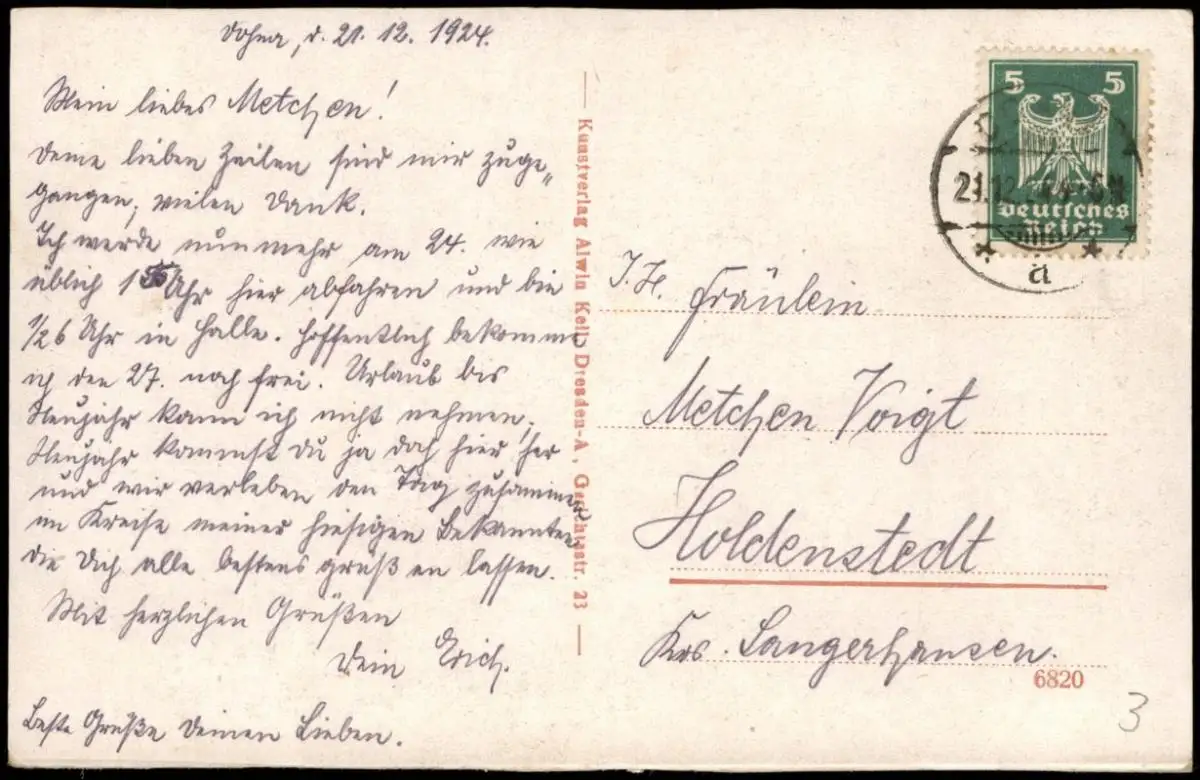 Dohna, d. 21. 12. 1924.
Mein liebes Metchen!
Deine lieben Zeilen sind mir zuge-
gangen, vielen Dank.
Ich werde nunmehr am 24. wie
üblich 1 Uhr hier abfahren und bin
1/26 Uhr in Halle. Hoffentlich bekomme
ich den 27. noch frei. Urlaub bis
Neujahr kann ich nicht nehmen.
Neujahr kommst Du ja doch hier her
und wir verleben den Tag zusammen
im Kreise meiner hiesigen Bekannten
die Dich alle bestens grüßen lassen.
Mit herzlichen Grüßen
Dein Erich.
Beste Grüße Deinen Lieben.
— Kunstverlag Alwin Keil, Dresden-A., Gerichtsstr. 23 —
5 5
Deutsches
Reich
21.12.24
* a *
Fräulein
Metchen Voigt
Holdenstedt
Krs. Sangerhausen.
6820
3